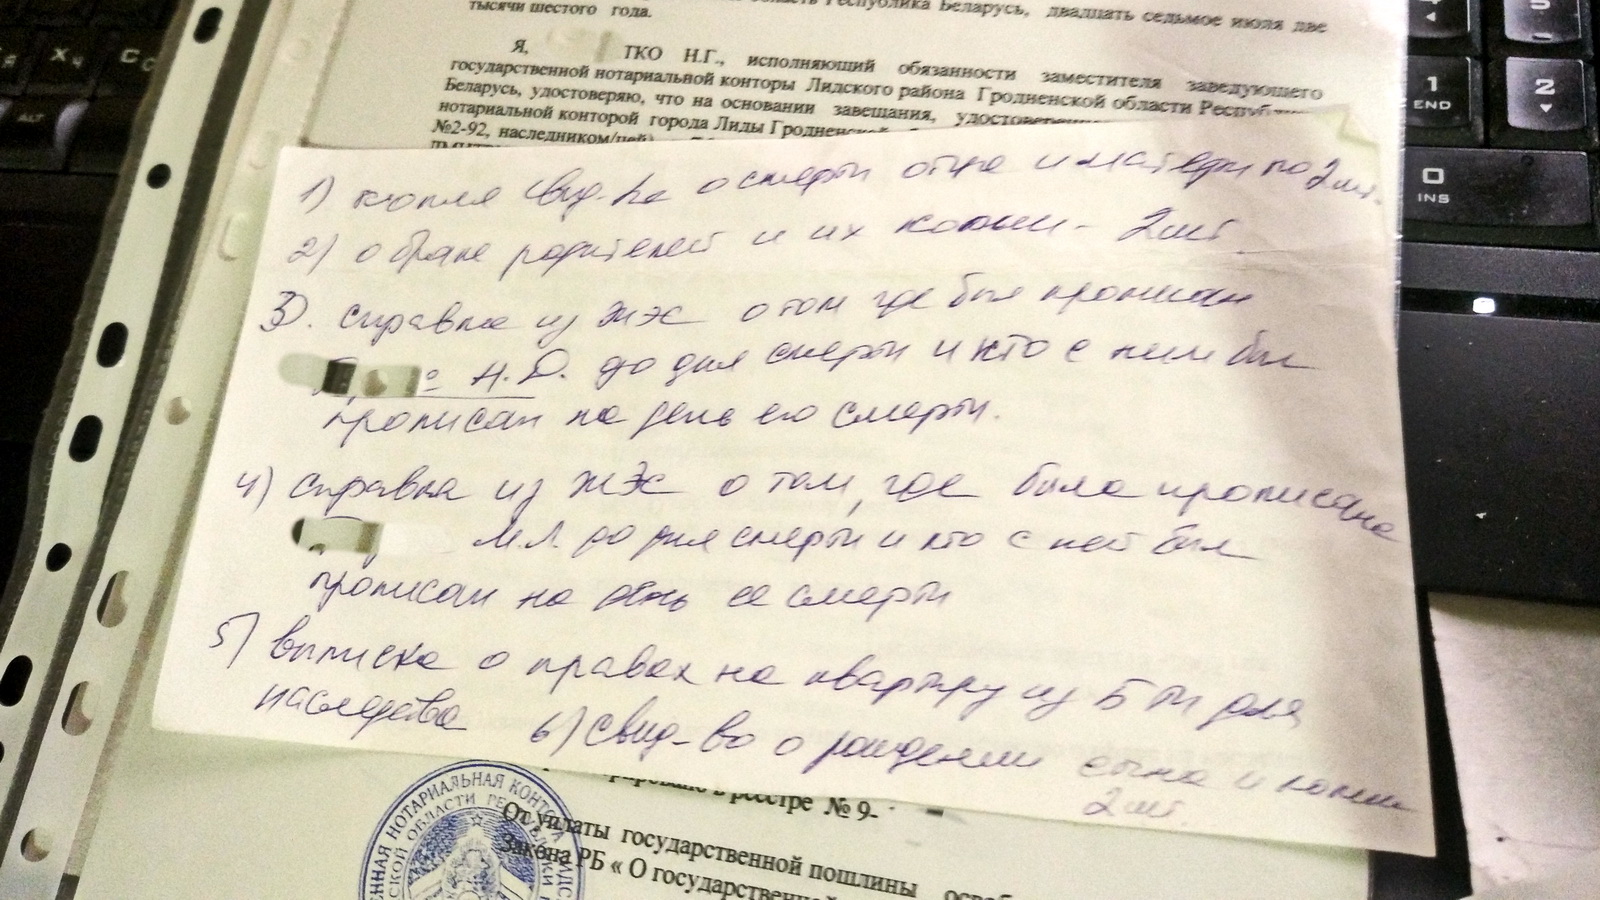 область Республика Беларусь, двадцать седьмое июля две
тысячи шестого года.
Я, ТКО Н.Г., исполняющий обязанности заместителя заведующего
государственной нотариальной конторы Лидского района Гродненской области Республики
Беларусь, удостоверяю, что на основании завещания,
нотариальной конторой города Лиды
№2-92, наследником/цей)
1) копия свид-ва о смерти отца и матери по 2 шт.
2) о браке родителей и их копии - 2 шт.
3). справка из ЖЭС о том где был прописан
Н.Д. до дня смерти и кто с ним был
прописан на день его смерти.
4) справка из ЖЭС о том, где была прописана
М.Л. до дня смерти и кто с ней был
прописан на день ее смерти
5) выписка о правах на квартиру из БТИ для
наследства 6) Свид-во о рождении сына и копии
2 шт.
в реестре № 9-
От уплаты государственной пошлины
Закона РБ « О государственной
НОТАРИАЛЬНАЯ КОНТОРА
ОБЛАСТИ
ALT
1
END
2
0
INS